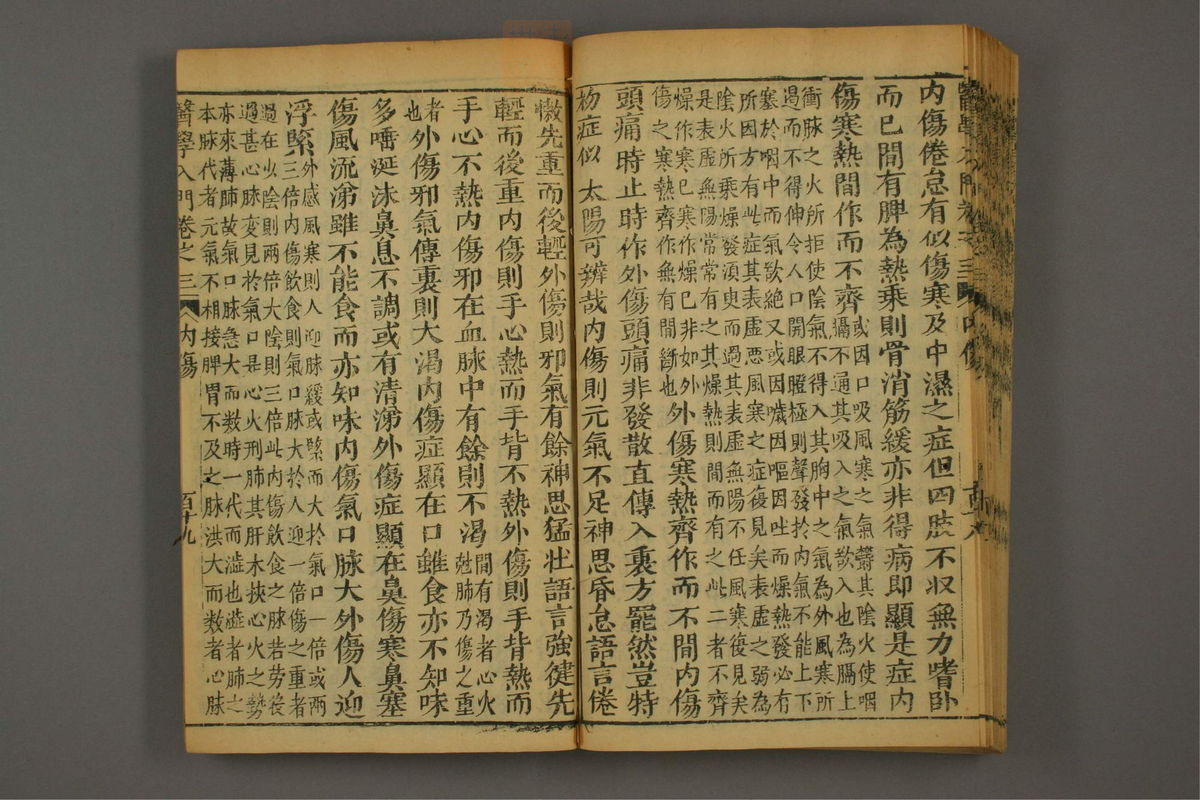 內傷倦怠有似傷寒及中濕之症但四肢不収無力嗜卧
而已間有脾為熱乘則骨消筋緩亦非得病即顯是症內
傷寒熱間作而不齊或因口吸風寒之氣鬱其陰火使咽
攝不通其吸入之氣欲入也為膈上
衝脉之火所拒使陰氣不得入其胸中之氣為外風寒所
遏而不得伸令人口開眼瞪極則聲發於內氣不能上下
塞於咽中而氣欲絕又或因噦因嘔因吐而燥熱發必有
所因方有此症其表虛惡風寒之症復見矣表虛之弱為
陰火所乘燥發須臾而過其表虛無陽不任風寒復見矣
是表虛無陽常常有之其燥熱則間而有之此二者不齊
燥作寒已寒作燥已非如外
傷之寒熱齊作無有間斷也外傷寒熱齊作而不間內傷
頭痛時止時作外傷頭痛非發散直傳入裏方罷然豈特
初症似太陽可辨哉內傷則元氣不足神思昏怠語言倦
懶先重而後輕外傷則邪氣有餘神思猛壯語言強健先
輕而後重內傷則手心熱而手背不熱外傷則手背熱而
手心不熱內傷邪在血脉中有餘則不渴間有渴者心火
尅肺乃傷之重
者
也外傷邪氣傳裏則大渴內傷症顯在口雖食亦不知味
多唾涎沫鼻息不調或有清涕外傷症顯在鼻傷寒鼻塞
傷風流涕雖不能食而亦知味內傷氣口脉大外傷人迎
浮緊外感風寒則人迎脉緩或緊而大於氣口一倍或兩
三倍內傷飲食則氣口脉大於人迎一倍傷之重者
過在少陰則兩倍太陰則三倍此內傷飲食之脉若勞役
過甚心脉变見於氣口是心火刑肺其肝木挾心火之勢
亦來薄肺故氣口脉急大而数時一代而澁也澁者肺之
本脉代者元氣不相接脾胃不及之脉洪大而数者心脉
醫學入門卷之三
內傷
百十九